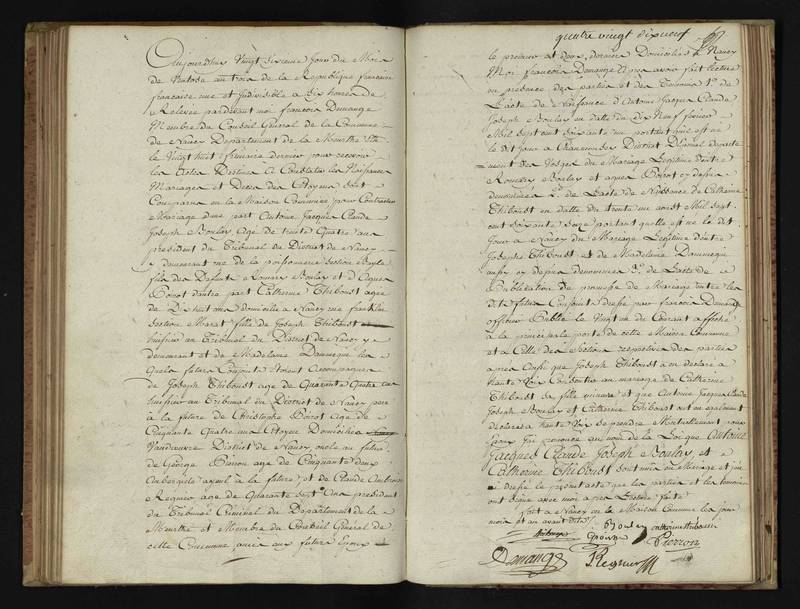 Aujourdhui Vingt Sixieme Jour du Mois
de Ventose an trois de la République francaise
francaise une et Indivisible a dix heures de
Relevée pardevant moi francois Demange
Membre du Conseil Général de la Commune
de Nancy Departement de la Meurthe élu
le Vingt huit frimaire dernier pour recevoir
les Actes Destinés a Constater les Naissances
Mariages et Decès des Citoyens sont
Comparus en la Maison Commune pour Contracter
Mariage d'une part Antoine Jacques Claude
Joseph Boulay agé de trente Quatre ans
président du Tribunal du District de Nancy
y demeurant rue de la poissonnerie section
fils des Defunts Boulay et d'
Poirot d'autre part Catherine Thiboust agée
de Dix huit ans domiciliée a Nancy rue franklin
Section Marat fille de Joseph Thiboust
huissier au Tribunal du District de Nancy y
demeurant et de Madelaine les
Quels futurs Conjoints étoient accompagnés
de Joseph Thiboust agé de Quarante Quatre ans
huissier au Tribunal du District de Nancy pere
a la future de Christophe Poirot agé de
Cinquante Quatre ans Citoyen Domicilié a
Vandoeuvre District de Nancy oncle au futur
de George Pierron agé de Cinquante deux
Aubergiste a la future et de Claude Ambroise
Regnier agé de Quarante Sept ans president
du Tribunal Criminel du Departement de la
Meurthe et Membre du Conseil Général de
cette Commune amis aux futurs Epoux
quatre vingt dix neuf
le premier et deux derniers Domiciliés a Nancy
Moi francois Demange apres avoir fait lecture
en presence des parties et des Temoins 1° de
l'acte de Naissance d'Antoine Jacques Claude
Joseph Boulay en datte du dix Neuf fevrier
Mil Sept cent Soixante un portant quil est né
le dit Jour a Chaumousey District D'Epinal departe
ment des Vosges du Mariage Legitime d'entre
Boulay et Poirot cy dessus
denommés 2° de l'acte de Naissance de Catherine
Thiboust en datte du trente un aoust Mil Sept
cent Soixante Seize portant quelle est née le dit
Jour a Nancy du Mariage Legitime d'entre
Joseph Thiboust et de Madelaine
aussy cy dessus denommés 3° de l'acte de
Publication de promesse de Mariage entre les
dits futurs Conjoints dressé par francois Demange
officier Public le Vingt un du Courant affiché
a la principale porte de cette Maison Commune
et a Celle des Sections respectives des parties
apres aussi que Joseph Thiboust a eu declaré a
haute Voix Consentir au mariage de Catherine
Thiboust sa fille mineure et que Antoine Jacques Claude
Joseph Boulay et Catherine Thiboust ont eu egalement
declaré a haute Voix se prendre Mutuellement pour
Epoux J'ai prononcé au nom de la Loi que Antoine
Jacques Claude Joseph Boulay et
Catherine Thiboust sont unis en Mariage et j'ai
dressé le present acte que les parties et les temoins
ont signé avec moi apres Lecture faite
fait a Nancy en la Maison Commune les jour
mois et an avant dits
Boulay Catherine thiboust
thiboust Poirot Pierron
Demange Regnier